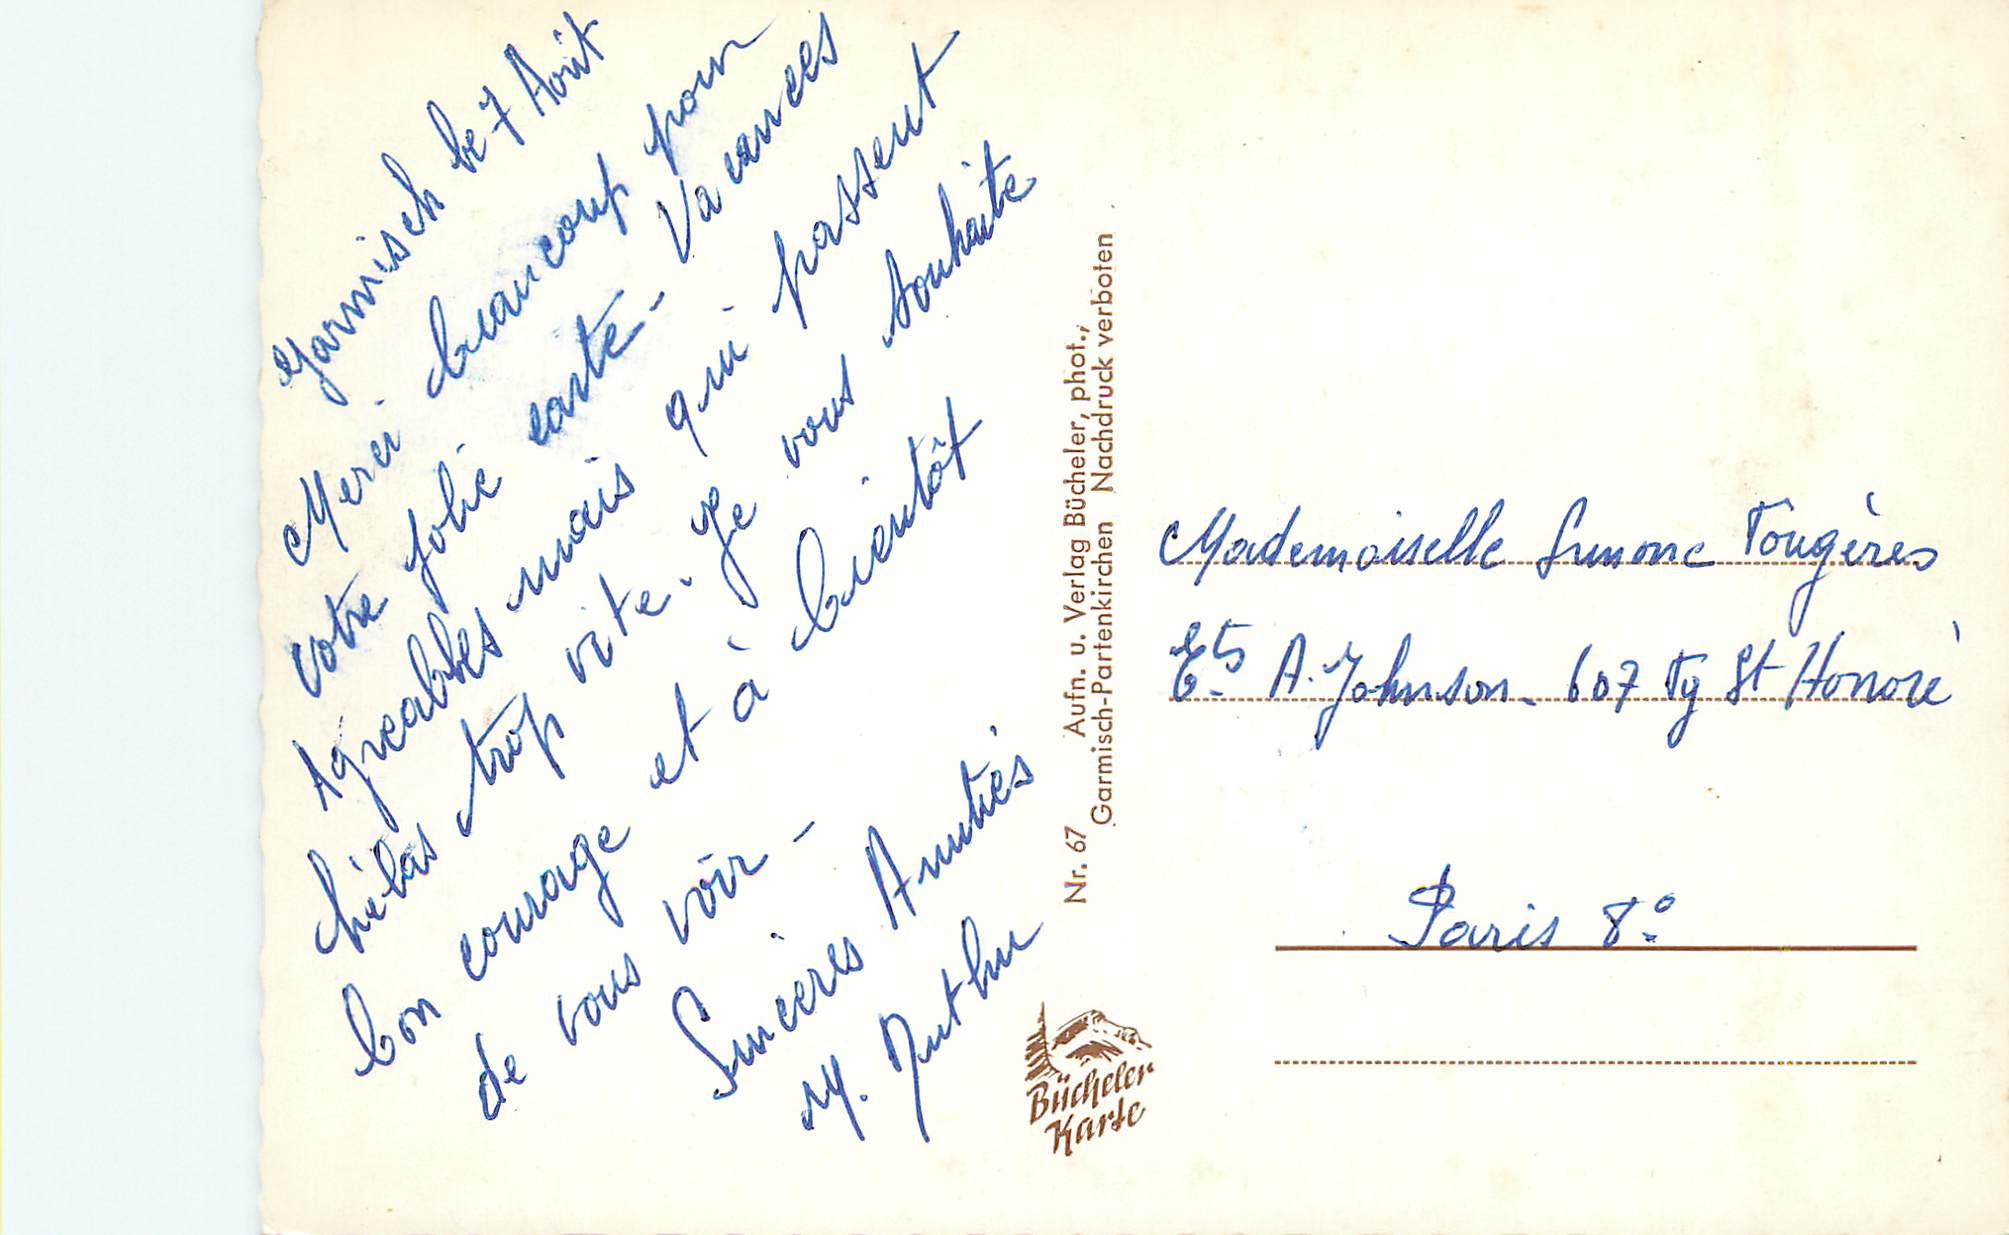 Garmisch le 7 Août
Merci beaucoup pour
votre jolie carte - Vacances
Agréables mais qui passent
hélas trop vite. Je vous souhaite
bon courage et à bientôt
de vous voir -
Sincères Amitiés
M.
Nr. 67 Aufn. u. Verlag Bücheler, phot.,
Garmisch-Partenkirchen Nachdruck verboten
Bücheler
Karte
Mademoiselle Simone Fougères
Ets A. Johnson. 607 Fg St Honoré
Paris 8°